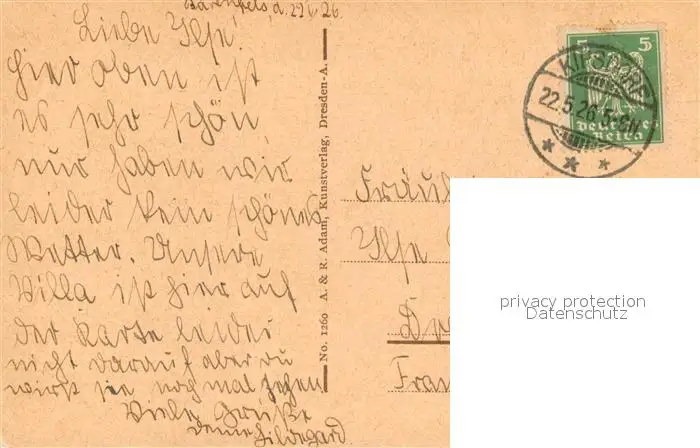 Bärenfels, d. 22.5.26.
Liebe Ilse!
Hier oben ist
es sehr schön,
nur haben wir
leider kein schönes
Wetter. Unsere
Villa ist hier auf
der Karte leider
nicht darauf aber du
wirst sie noch mal sehen
Viele Grüße
deine Hildegard.
No. 1260 A. & R. Adam, Kunstverlag, Dresden-A.
5 5
Deutsches
Reich
KIPSDORF
22.5.26.
Fräul
Ilse
Dr
Fra
privacy protection
Datenschutz